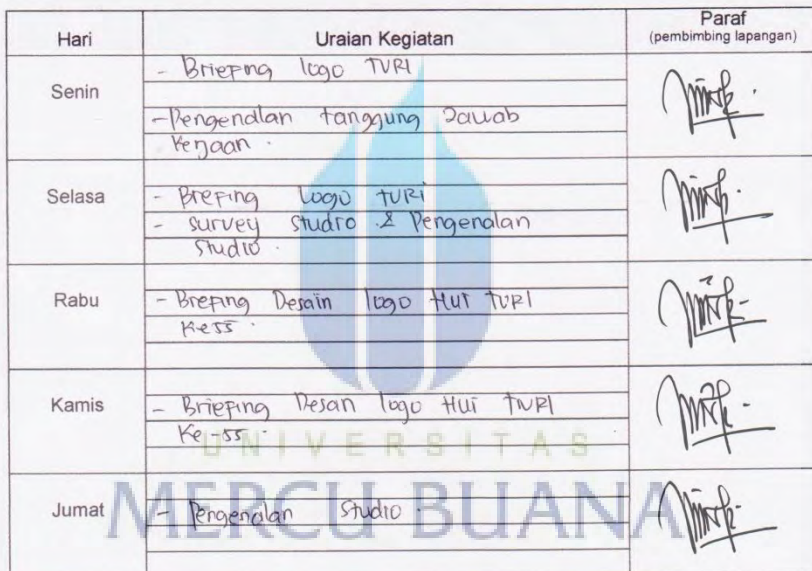 Hari Uraian Kegiatan Paraf
(pembimbing lapangan)
Senin
- Briefing logo TVRI
- Pengenalan tanggung Jawab
Kerjaan.
Selasa
- Brefing Logo TVRI
- survey studio & Pengenalan
Studio.
Rabu
- Brefing Desain logo HUT TVRI
Ke 55.
Kamis
- Briefing Desan logo HUT TVRI
Ke-55.
Jumat
- Pengenalan Studio.
UNIVERSITAS
MERCU BUANA